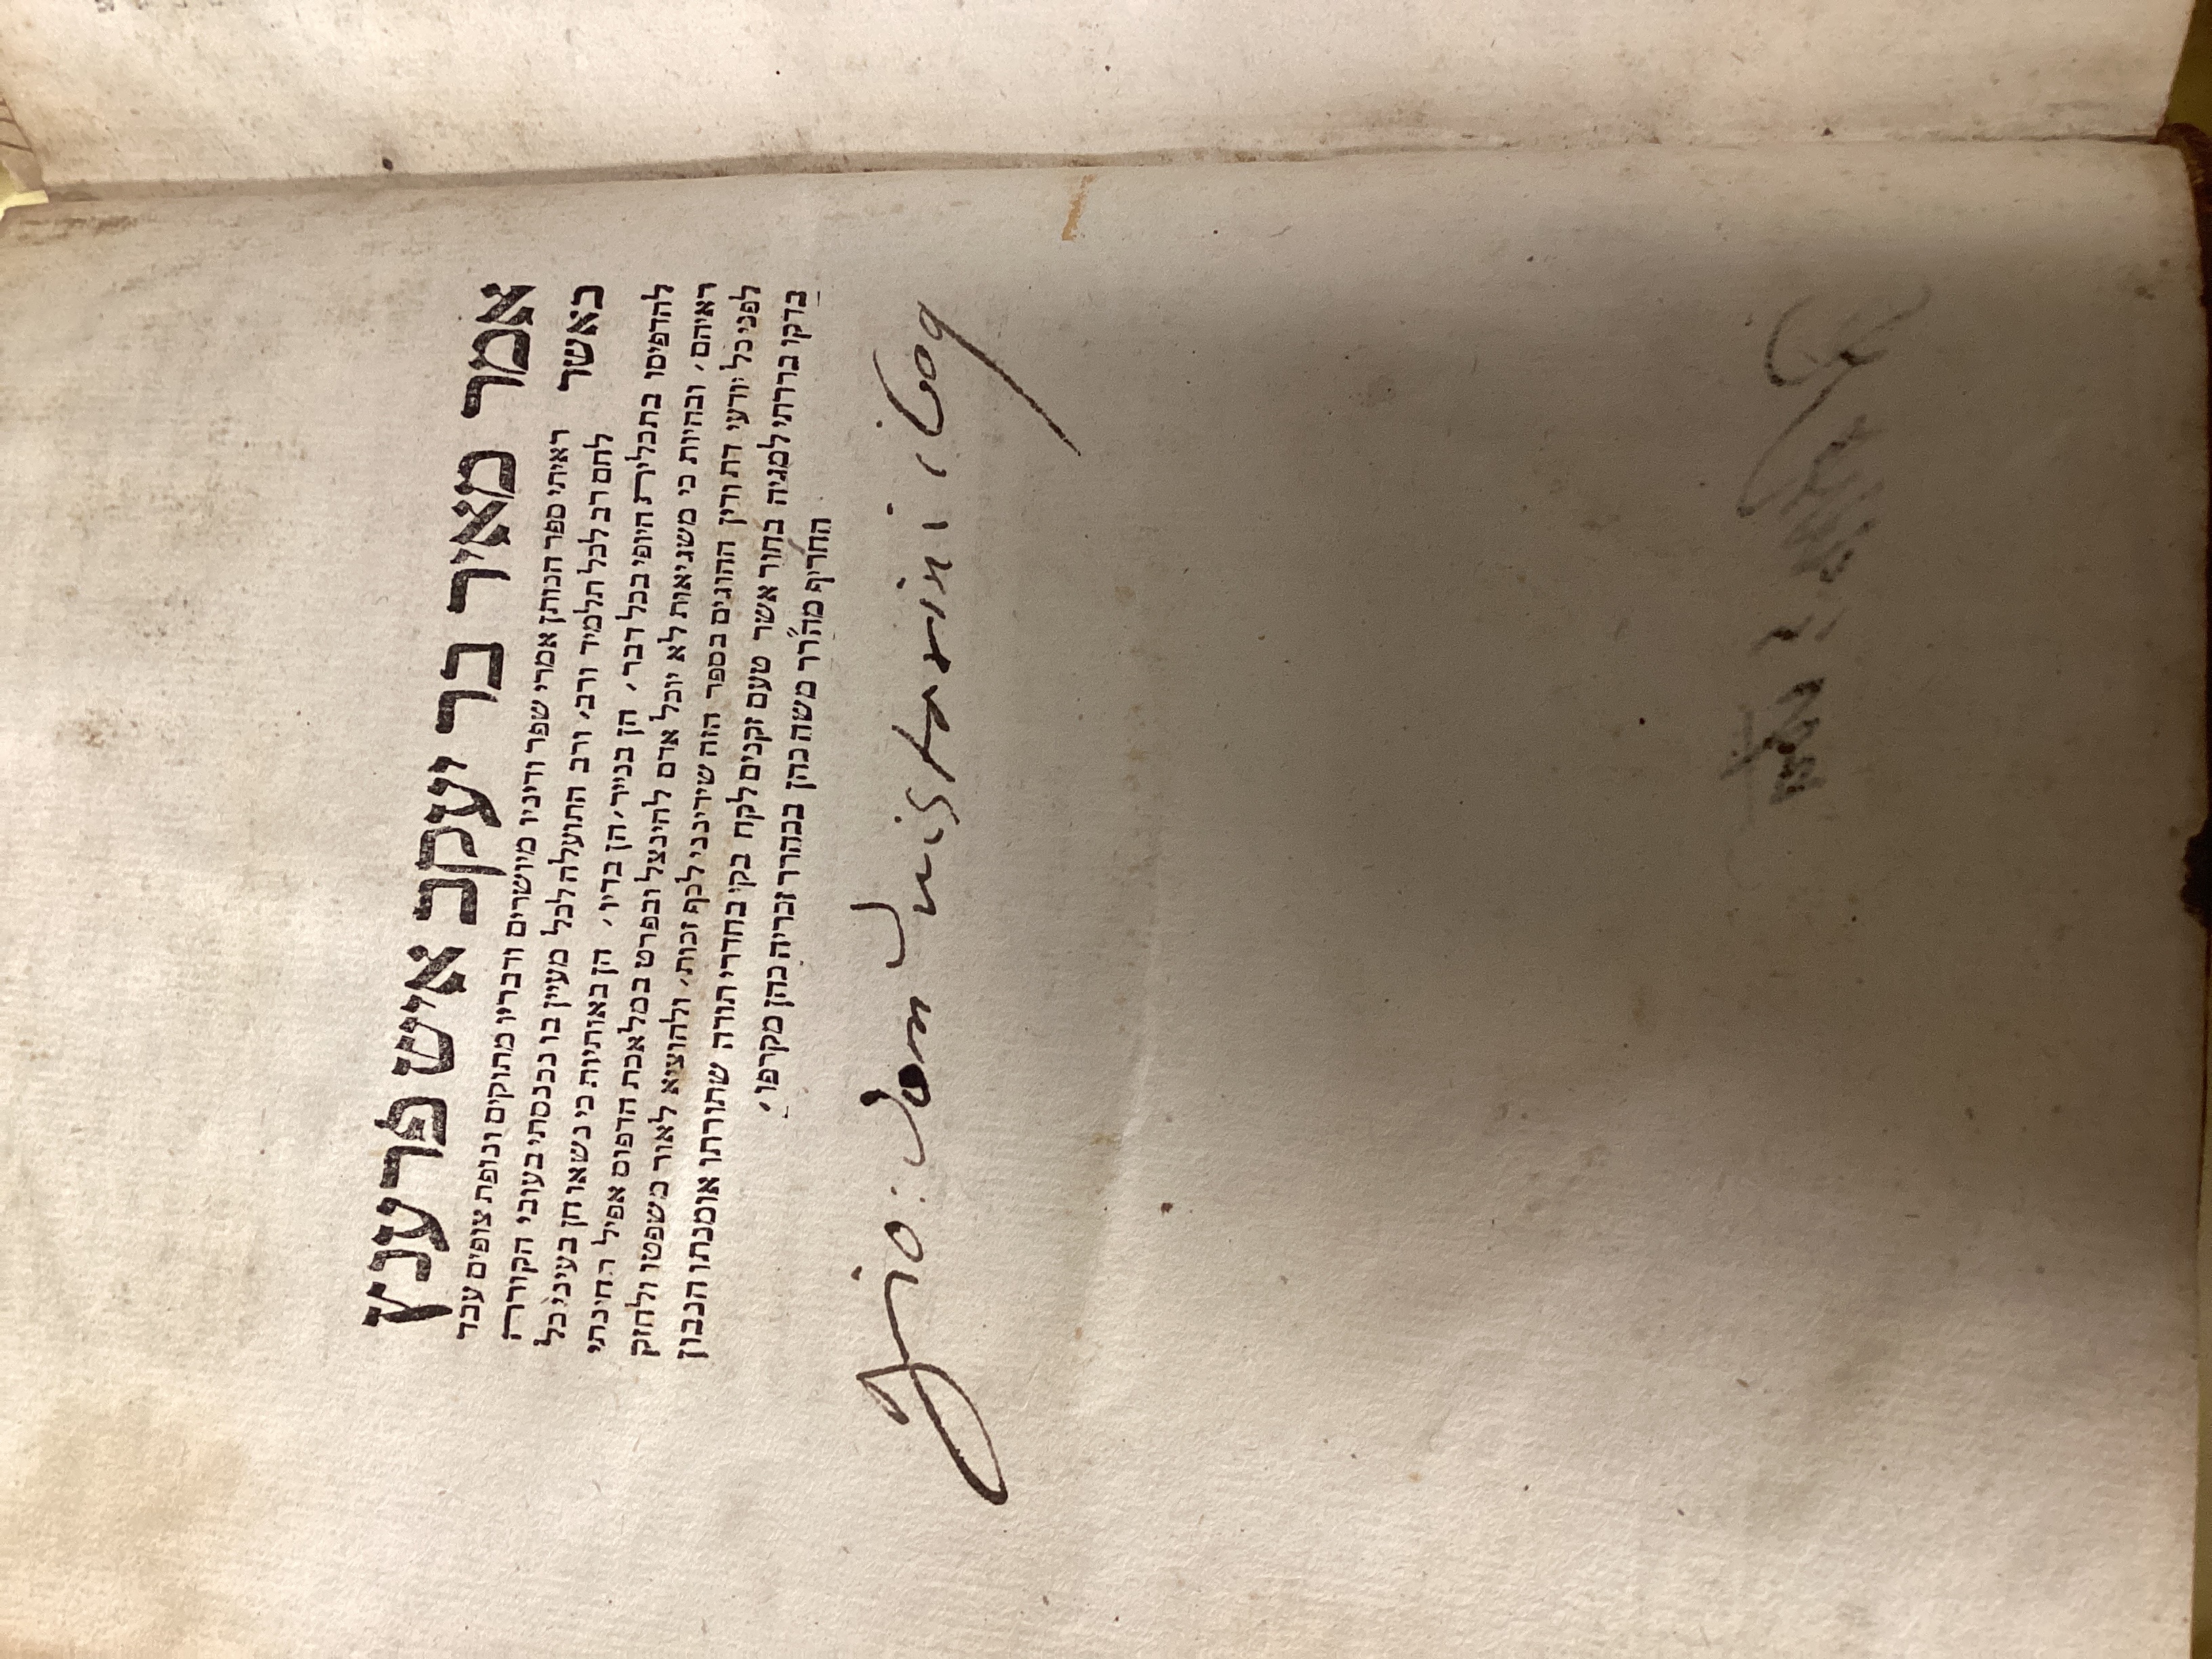 אמר מאיר בר יעקב איש פרענץ
כאשר ראיתי ספר הנותן אמרי שפר ודיניו מיושרים ודבריו מתוקים ונופת צופים עבד
לחם רב לכל תלמיד ורב, ורב התועלה לכל מעיין בו נכנסתי בעובי הקורה
להדפיסו בתכלית היופי בכל דבר, הן בנייר, הן בדיו, הן באותיות כי נשאו חן בעיני כל
ראיהם, ובהיות כי משגיאות לא יוכל אדם להינצל ובפרט במלאכת הדפוס אפיל' חיניתי
לפני כל יודעי דת ודין ההוגים בספר הזה שידינני לכף זכות, ולהוציא לאור משפטו ולחזק
בדקו בררתי למגיה בחור אשר טעם זקנים לקח בקי בחדרי תורה שתורתו אומנתו הנבון
החריף מה"רר משה כהן בכהרר זכריה כהן מקרפו,
Gio: Dom
1609